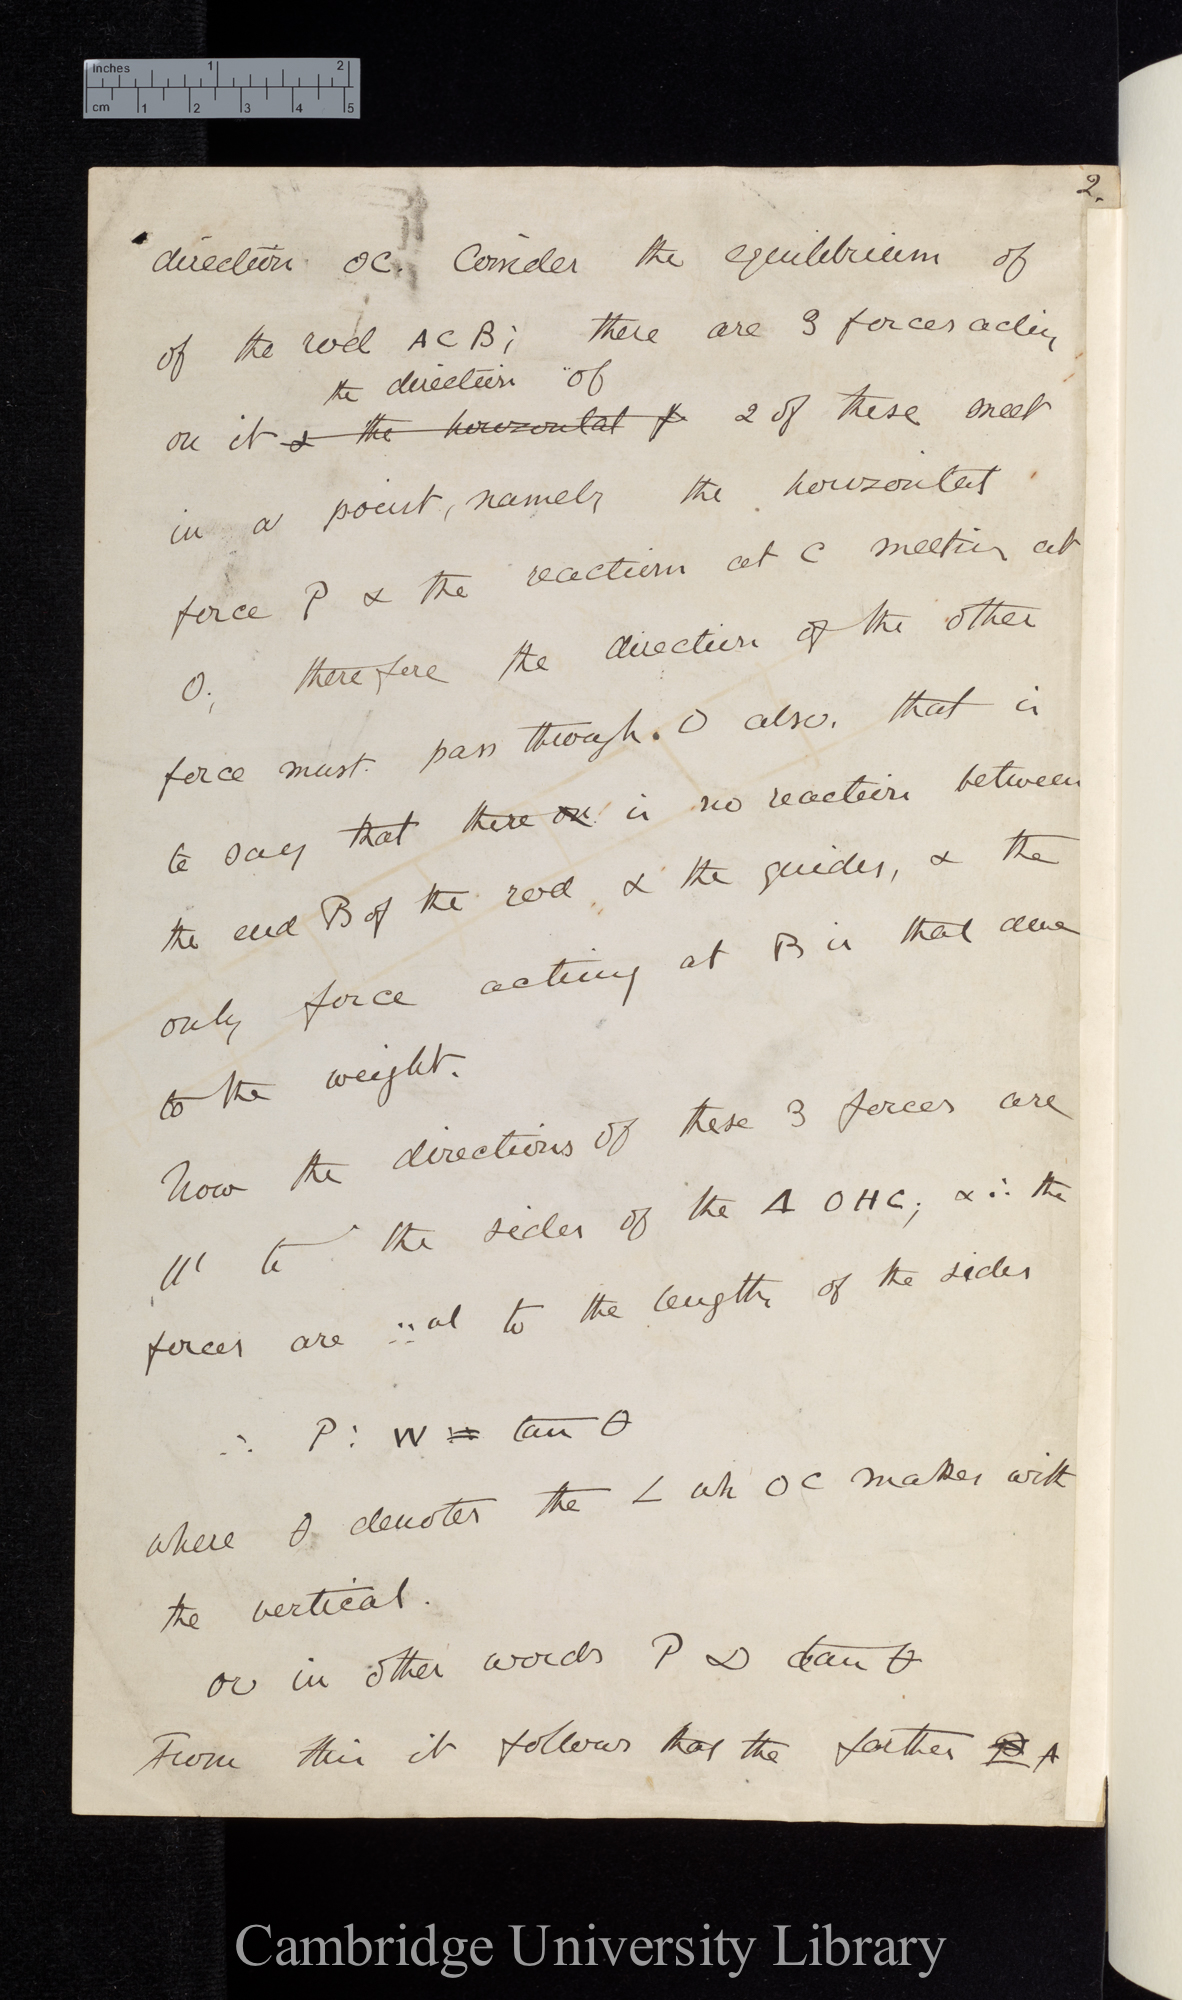 inches 1 2
cm 1 2 3 4 5
2.
direction OC. Consider the equilibrium of
of the rod ACB; there are 3 forces acting
the direction of
on it & the horizontal f 2 of these meet
in a point, namely the horizontal
force P & the reaction at C meeting at
O; therefore the direction of the other
force must pass through O also. that is
to say that there on is no reaction between
the end B of the rod & the guides, & the
only force acting at B is that due
to the weight.
Now the directions of these 3 forces are
||l to the sides of the Δ OHC; & ∴ the
forces are ::al to the lengths of the sides
∴ P : W = tan θ
where θ denotes the ∠ wh OC makes with
the vertical.
or in other words P ∝ tan θ
From this it follows that the farther A
Cambridge University Library